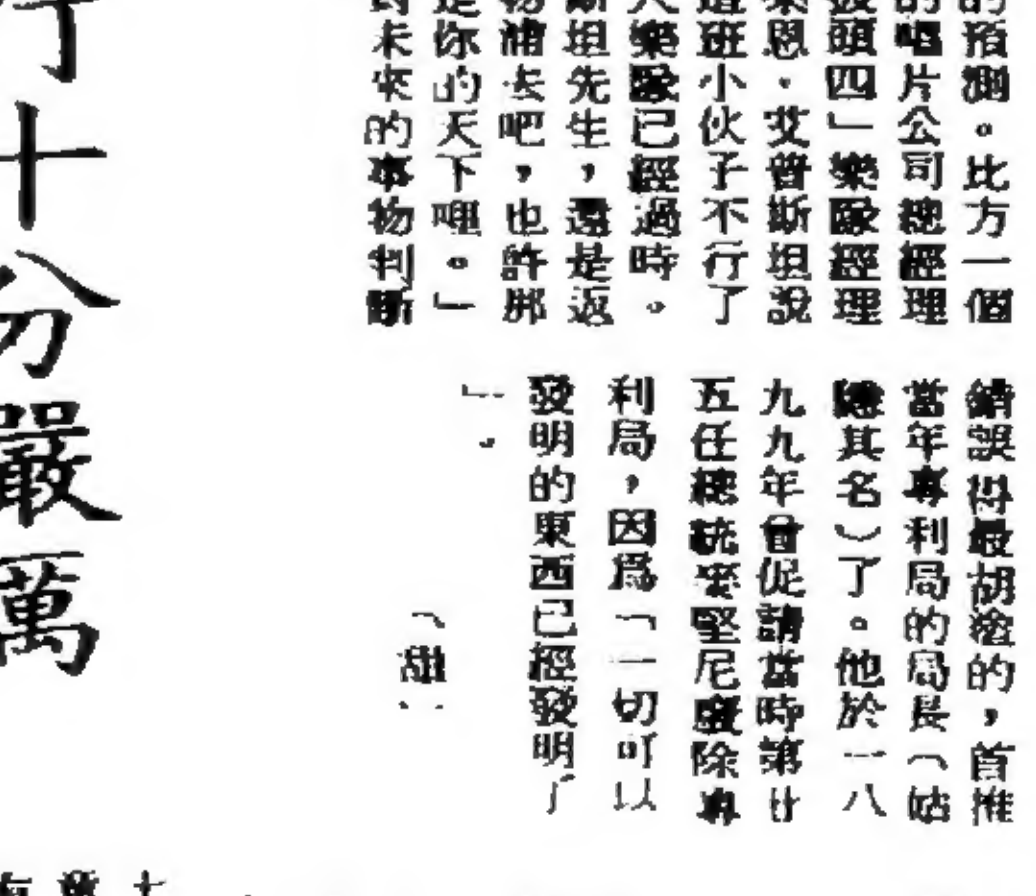 的預測。比方一個
的唱片公司總經理
披頭四」樂隊經理
萊恩．艾普斯坦說
這班小伙子不行了
人樂隊已經過時。
斯坦先生，還是返
物浦去吧，也許那
是你的天下哩。」
對未來的事物判斷
錯誤得最胡塗的，首推
當年專利局的局長（姑
隱其名）了。他於一八
九九年曾促請當時第廿
五任總統麥堅尼廢除專
利局，因為「一切可以
發明的東西已經發明了
」。
（甜）
行十分嚴萬